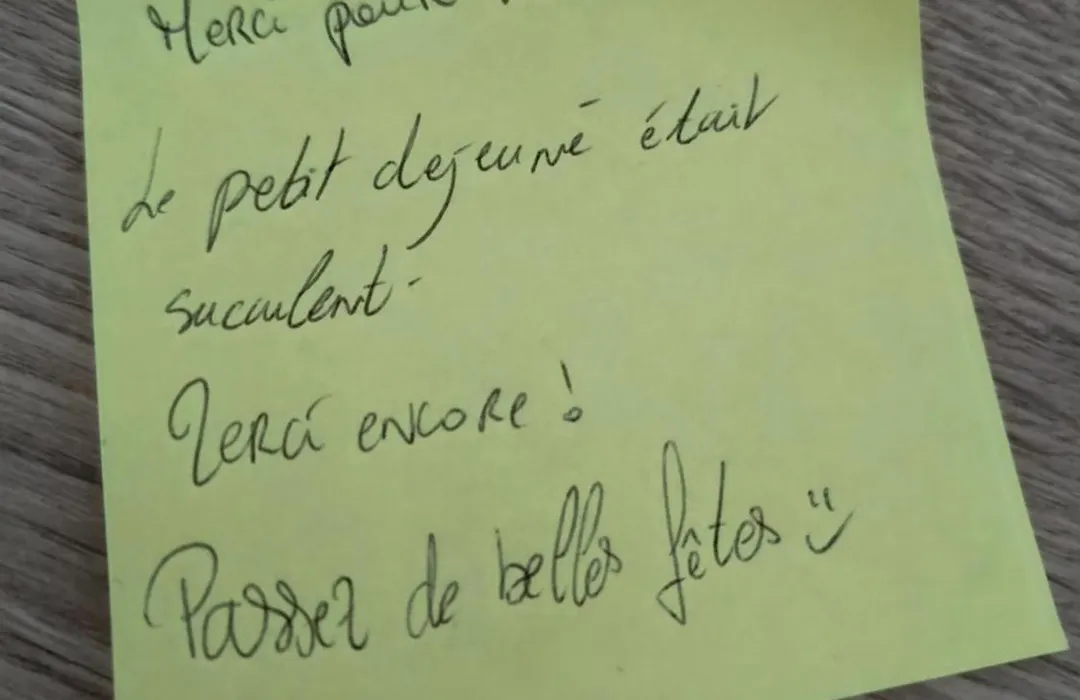 Merci pour
Le petit dejeuné était
succulent.
Merci encore !
Passez de belles fêtes